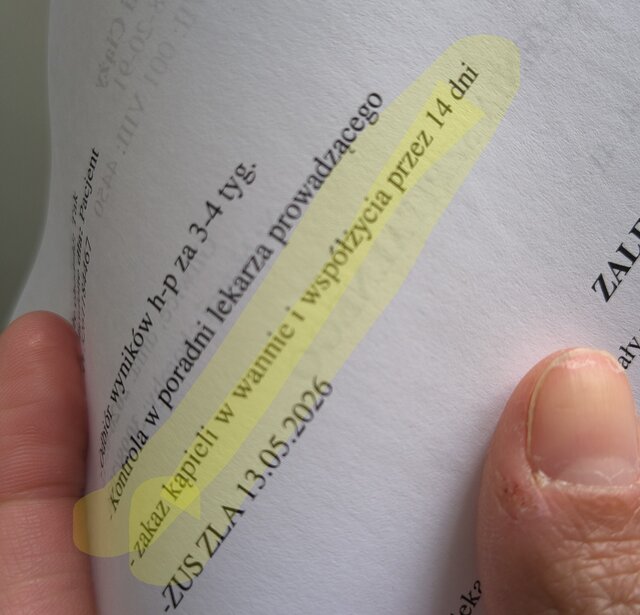 Odbiór wyników h-p za 3-4 tyg.
-Kontrola w poradni lekarza prowadzącego
- zakaz kąpieli w wannie i współżycia przez 14 dni
-ZUS ZLA 13.05.2026
Pacjent
ZALE